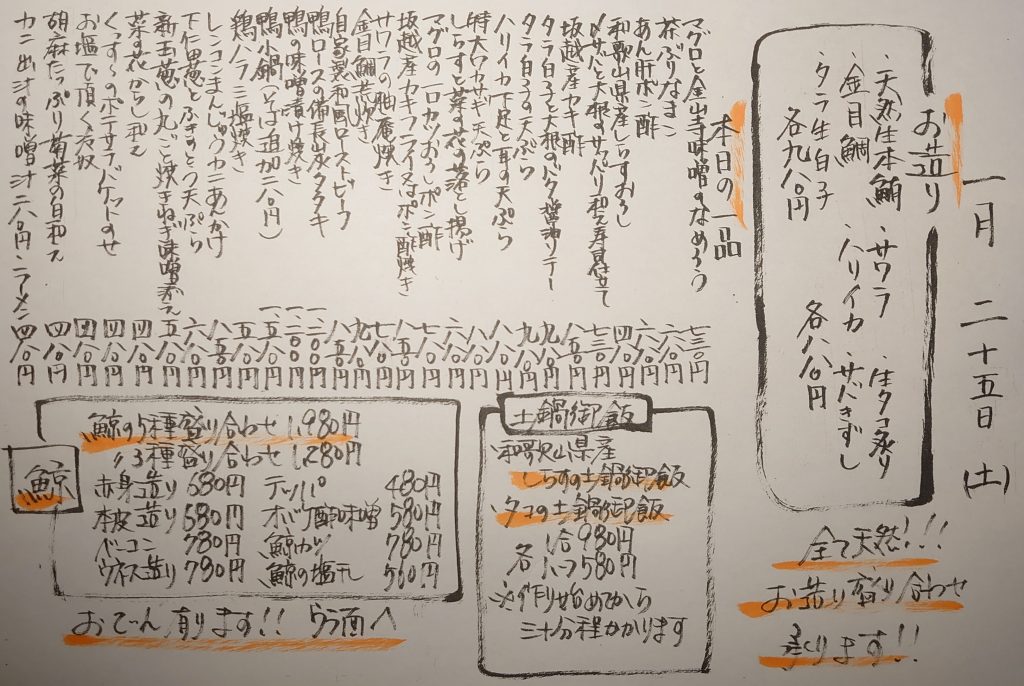 一月二十五日(土)
お造り
・天然生本鮪 ・サワラ ・生タコ炙り
・金目鯛 ・ハリイカ ・サバきずし
・タラ生白子 各八八〇円
各九八〇円
全て天然!!!
お造り盛り合わせ
承ります!!
本日の一品
マグロと金山寺味噌のなめろう 七三〇円
茶ぶりなまこ
あん肝ポン酢
和歌山県産しらすおろし 四八〇円
〆サバと大根のサッパリ和え寿司仕立て 七三〇円
坂越産カキ酢
タラ白子と大根のバター醤油ソテー
タラ白子の天ぷら
ハリイカ下足と耳の天ぷら
特大ワカサギ天ぷら
しらすと菜の花の落とし揚げ
マグロの一口カツおろしポン酢
坂越産カキフライ又はポン酢焼き
サワラの柚庵焼き
金目鯛煮炊き
自家製和風ローストビーフ
鴨ロースの備長炭タタキ
鴨の味噌漬け焼き
鴨小鍋(そば追加二八〇円)
鶏ハラミ塩焼き
レンコンまんじゅうカニあんかけ
下仁田葱とふきのとう天ぷら
新玉葱の丸ごと焼きねぎ味噌添え
菜の花からし和え 四八〇円
くっす〜のポテサラバケットのせ 四八〇円
お塩で頂く冷奴 四八〇円
胡麻たっぷり菊菜の白和え 四八〇円
カニ出汁の味噌汁 二八〇円・ラーメン 四八〇円
土鍋御飯
・和歌山県産
しらすの土鍋御飯
・タコの土鍋御飯
各 1合980円
ハーフ580円
※作り始めてから
三十分程かかります
鯨
鯨の5種盛り合わせ 1,980円
〃3種盛り合わせ 1,280円
赤身造り 680円 テッパ 480円
本皮造り 580円 オバケ酢味噌 580円
ベーコン 780円 鯨カツ 780円
ウネス造り 780円 鯨の塩干し 560円
おでん有ります!! ウラ面へ